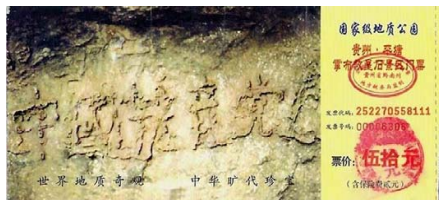 中國共产党亡
世界地质奇观 中华旷代珍宝
国家级地质公园
贵州·平塘
掌布救星石景区门票
发票代码: 252270558111
发票号码:
票价: 伍拾元
(含保险费贰元)